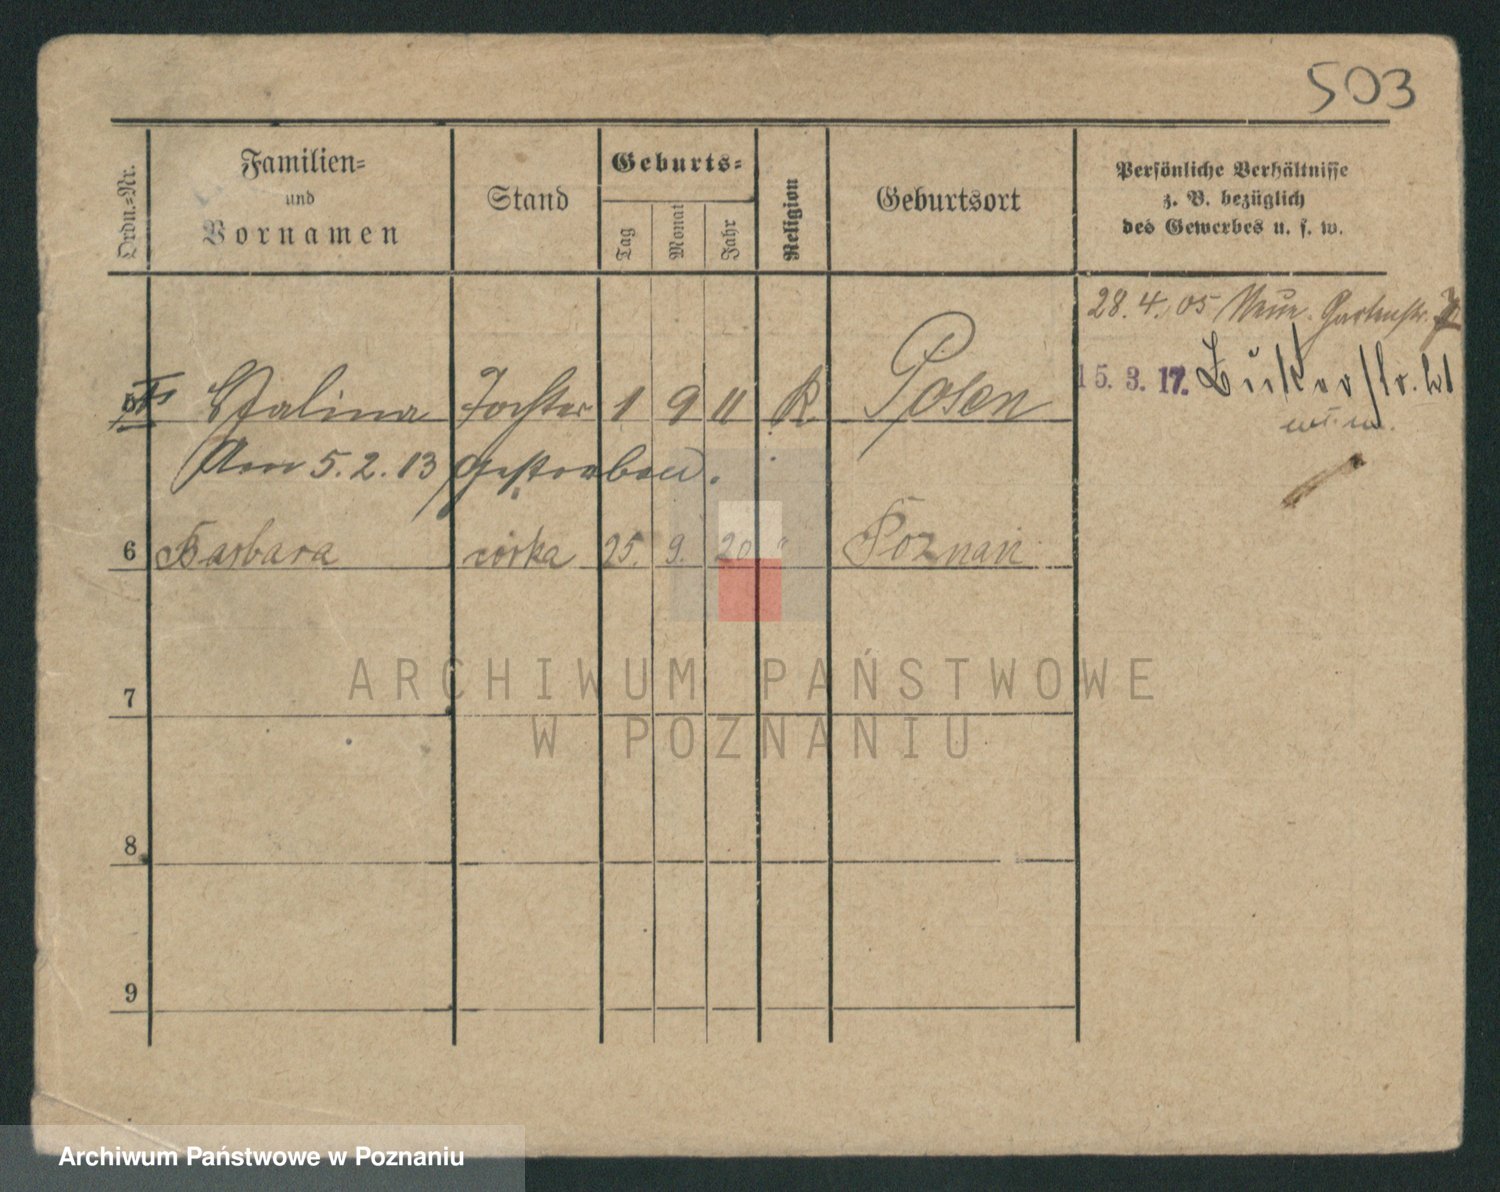 503
Ordn.-Nr.
Familien-
und
Vornamen
Stand
Geburts-
Tag
Monat
Jahr
Religion
Geburtsort
Persönliche Verhältnisse
z. B. bezüglich
des Gewerbes u. s. w.
28. 4. 05 Neue Gartenstr.
15. 3. 17. Bukerstr.
Halina Tochter 1 9 11 R. Posen
Am 5. 2. 13 gestorben.
6 Barbara córka 25. 9. 20 " Poznań
7
8
9
ARCHIWUM PAŃSTWOWE
W POZNANIU
Archiwum Państwowe w Poznaniu